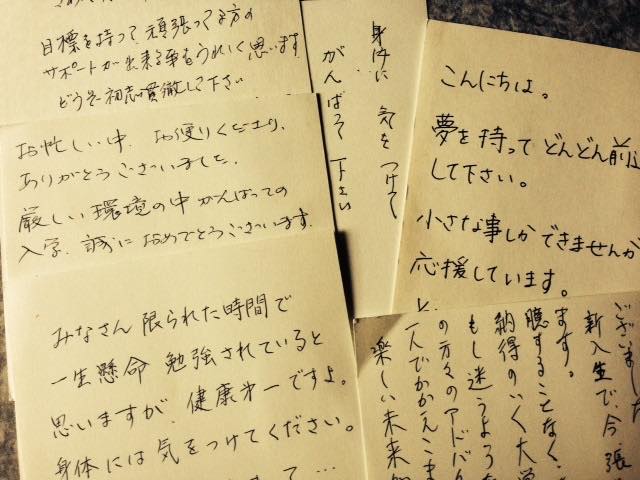 目標を持って頑張ってる方の
サポートが出来る事もうれしく思います
どうぞ初志貫徹して下さい
お忙しい中、お便りくださり、
ありがとうございました。
厳しい環境の中がんばっての
入学、誠におめでとうございます。
みなさん 限られた時間で
一生懸命 勉強されていると
思いますが、健康第一ですよ。
身体には気をつけてください。
身体に気をつけて
がんばって下さい
こんにちは。
夢を持ってどんどん前進
して下さい。
小さな事しかできませんが
応援しています。
ございました
新入生で、今、張
ます。
臆することなく、
納得のいく大学
もし迷うような
の方々のアドバイ
と一人でかかえこま
楽しい未来